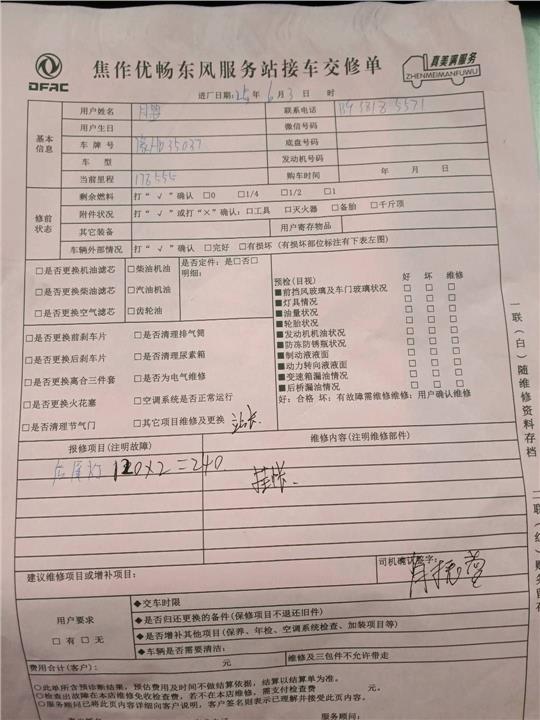 DFAC
焦作优畅东风服务站接车交修单
真美满服务
ZHENMEIMANFUWU
进厂日期：25年6月3日 时
基本信息
用户姓名
联系电话
用户生日
微信号码
车牌号
底盘号码
车型
发动机号码
当前里程 178555
购车时间 年 月 日
修前状态
剩余燃料 打“√”确认 □0 □1/4 □1/2 □1
附件状况 打“√”或打“×”确认：□工具 □灭火器 □备胎 □千斤顶
其它装备
用户寄存物品
车辆外部情况 打“√”确认 □完好 □有损坏（有损坏部位标注有下表左图）
□是否更换机油滤芯 □柴油机油
□是否更换柴油滤芯 □汽油机油
□是否更换空气滤芯 □齿轮油
是否定件：是□否□
明细：
□是否更换前刹车片 □是否清理排气筒
□是否更换后刹车片 □是否清理尿素箱
□是否更换离合三件套 □是否为电气维修
□是否更换火花塞 □空调系统是否正常运行
□是否清理节气门 □其它项目维修及更换
预检（目视） 好 坏 维修
■前挡风玻璃及车门玻璃状况 □ □ □
■灯具情况 □ □ □
■油量状况 □ □ □
■轮胎状况 □ □ □
■发动机机油状况 □ □ □
■防冻防锈瓶状况 □ □ □
■制动液液面 □ □ □
■动力转向液液面 □ □ □
■变速箱漏油情况 □ □ □
■后桥漏油情况 □ □ □
好：合格 坏：有故障需维修维修：用户确认维修
报修项目（注明故障）
维修内容（注明维修部件）
后尾灯 120×2=240
挂帐
建议维修项目或增补项目：
司机确认签字：
用户要求
□有 □无
◆交车时限
◆是否归还更换的备件（保修项目不退还旧件）
◆是否增补其他项目（保养、年检、空调系统检查、加装项目等）
◆车辆是否需要清洁：
费用合计（客户）： 元
维修及三包件不允许带走
○此单所含预诊断结果，预估费用及时间不做结算依据，结算以结算单为准。
○检查出故障在本店维修免收检查费，若不在本店维修，需支付检查费 元。
○服务顾问已将此页内容详细向客户说明，客户签名则表示已理解并接受此页内容。
服务顾问：
一联（白）随维修资料存档